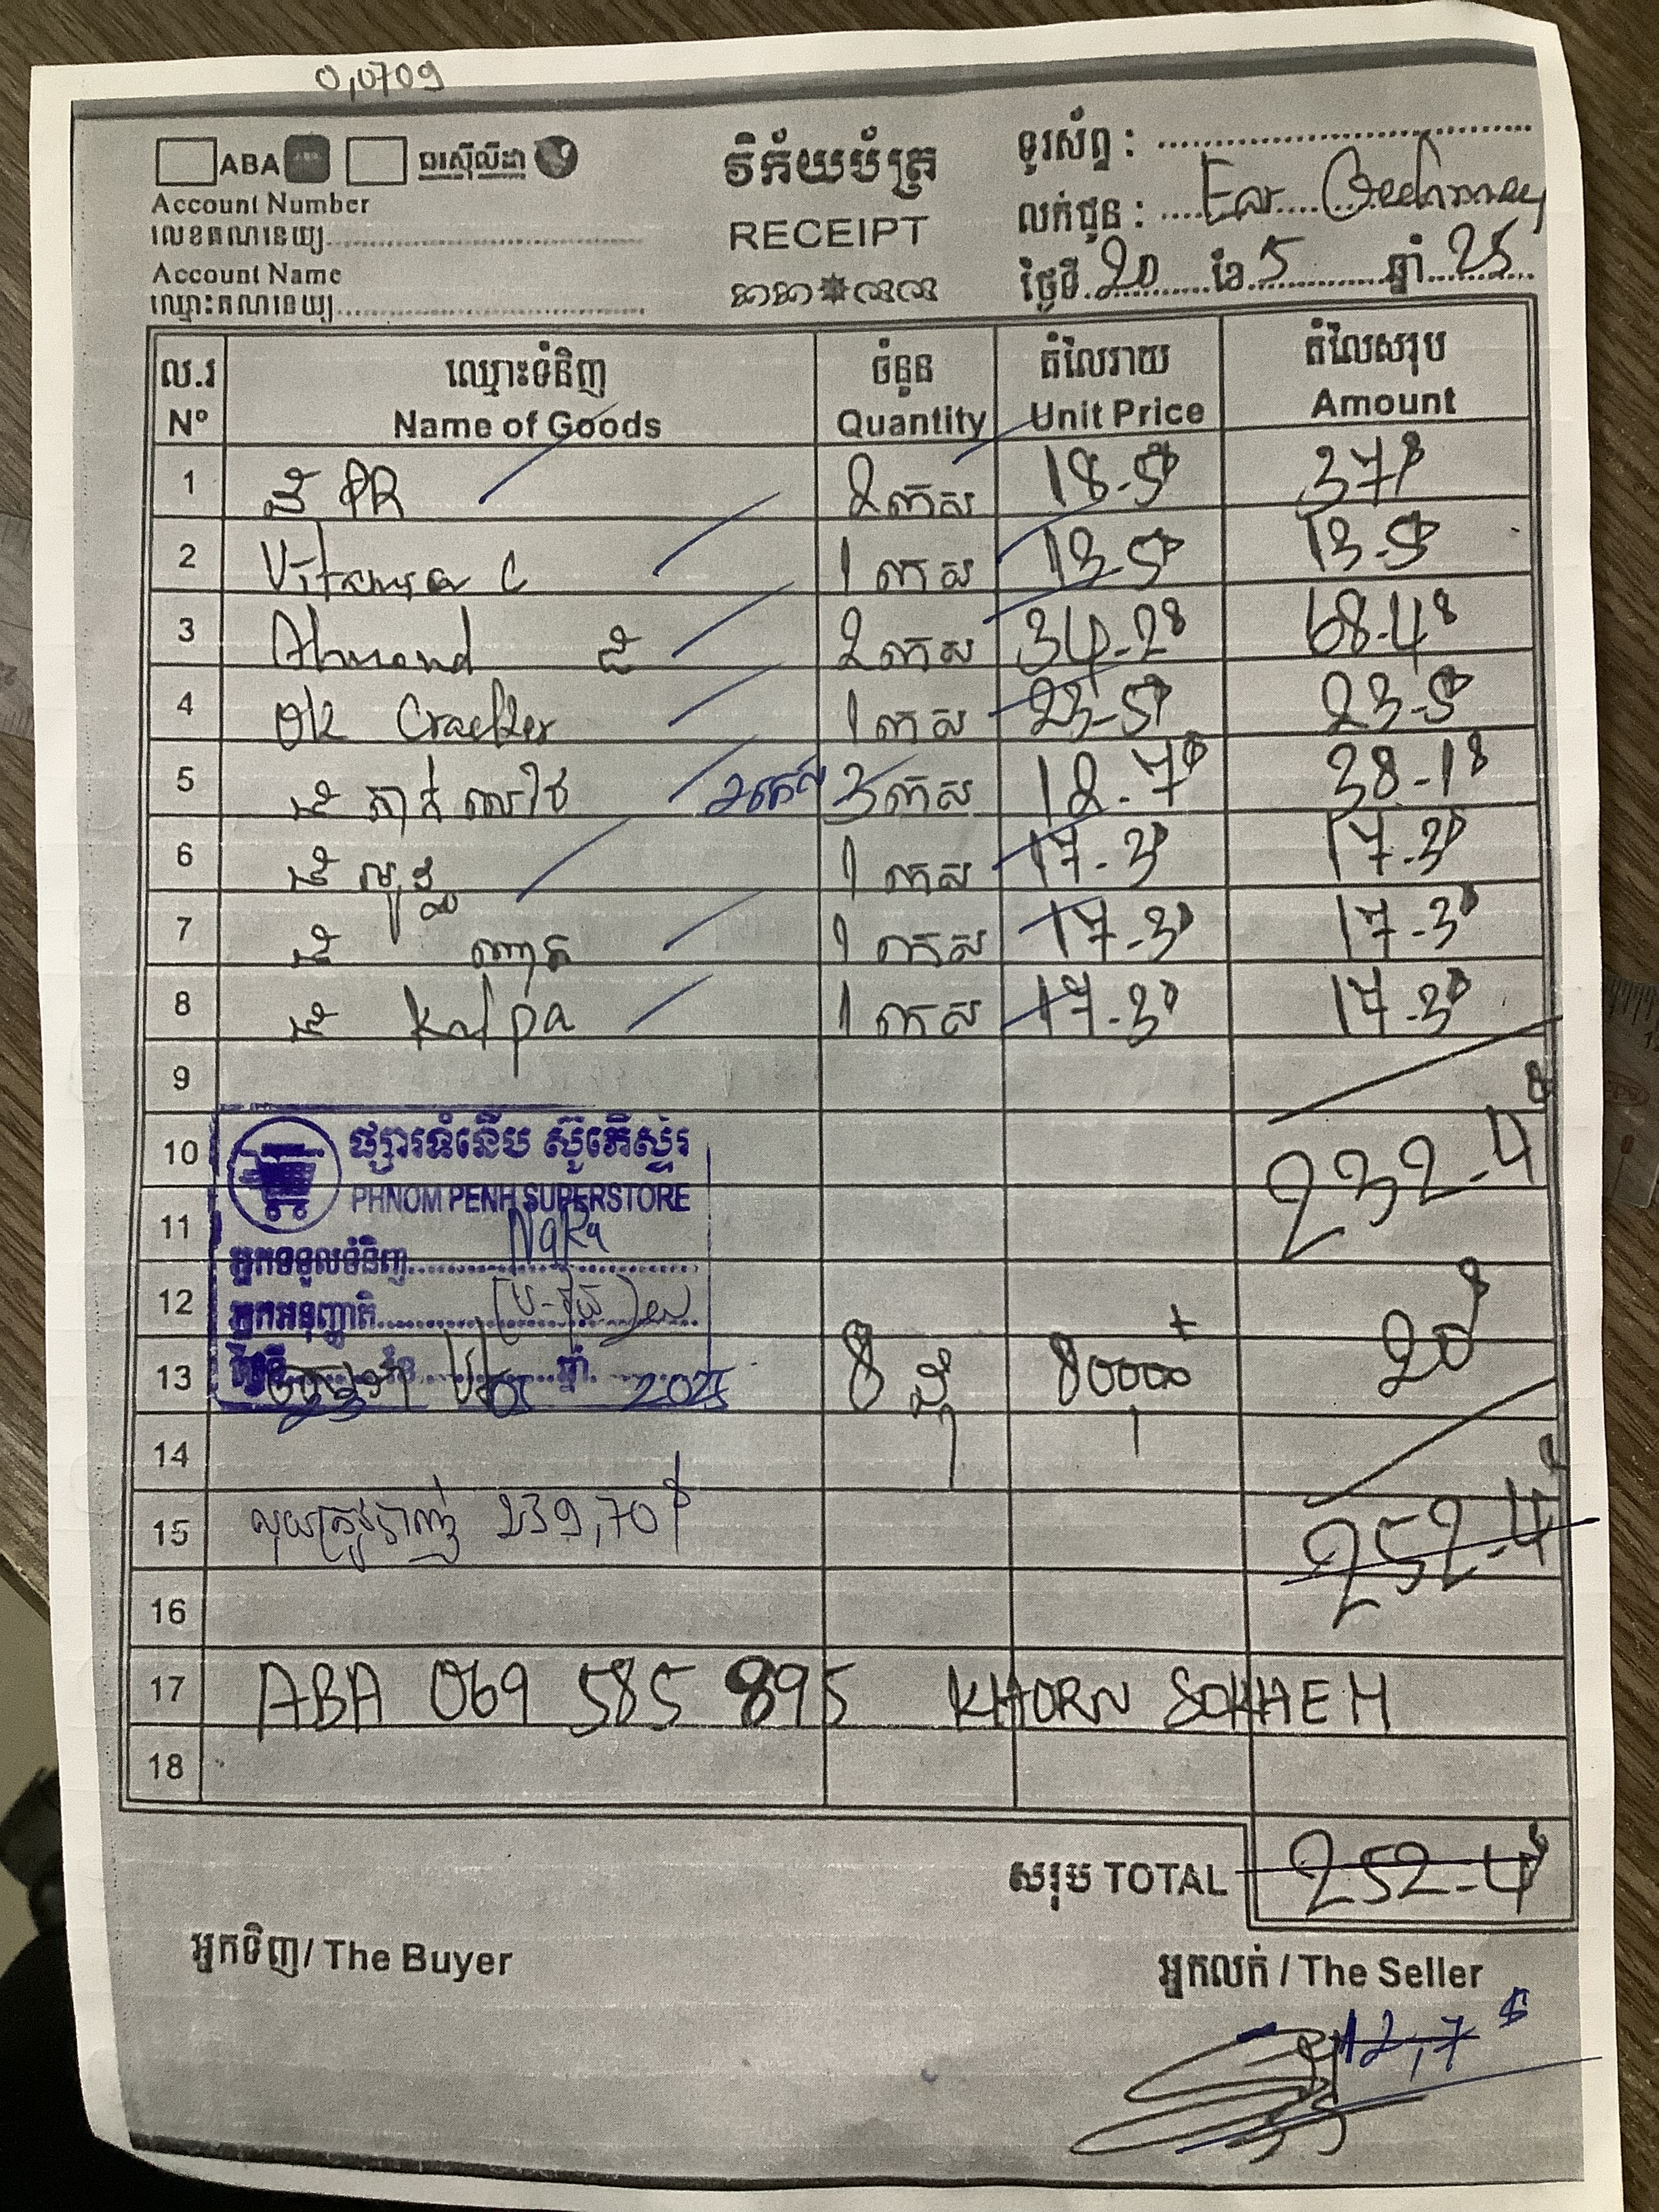 0,0709
ABA ធរស៊ីលីដា
Account Number
លេខគណនេយ្យ
Account Name
ឈ្មោះគណនេយ្យ
វិក័យប័ត្រ
RECEIPT
ទូរស័ព្ទ :
លក់ជូន : Ear
ថ្ងៃទី 20 ខែ 5 ឆ្នាំ 25
ល.រ ឈ្មោះទំនិញ ចំនួន តំលៃរាយ តំលៃសរុប
Nº Name of Goods Quantity Unit Price Amount
1 PR 2 កេស 18-5$ 37$
2 Vitamin C 1 កេស 13-5$ 13-5$
3 Almond 2 កេស 34-2$ 68-4$
4 OK Cracker 1 កេស 23-5$ 23-5$
5 2កេស 3 កេស 12-7$ 38-1$
6 1 កេស 17-3$ 17-3$
7 1 កេស 17-3$ 17-3$
8 Kalpa 1 កេស 17-3$ 17-3$
9
10 232-4$
ផ្សារទំនើប ស៊ូភើស្ទ័រ
PHNOM PENH SUPERSTORE
11
អ្នកទទួលទំនិញ
12
អ្នកអនុញ្ញាតិ
13 2025 8 80000 20$
14
15 លុយត្រូវបាញ់ 239,70$ 252-4$
16
17 ABA 069 585 895 KHORN SOKHEM
18
សរុប TOTAL 252-4$
អ្នកទិញ/ The Buyer
អ្នកលក់ / The Seller
12,7$